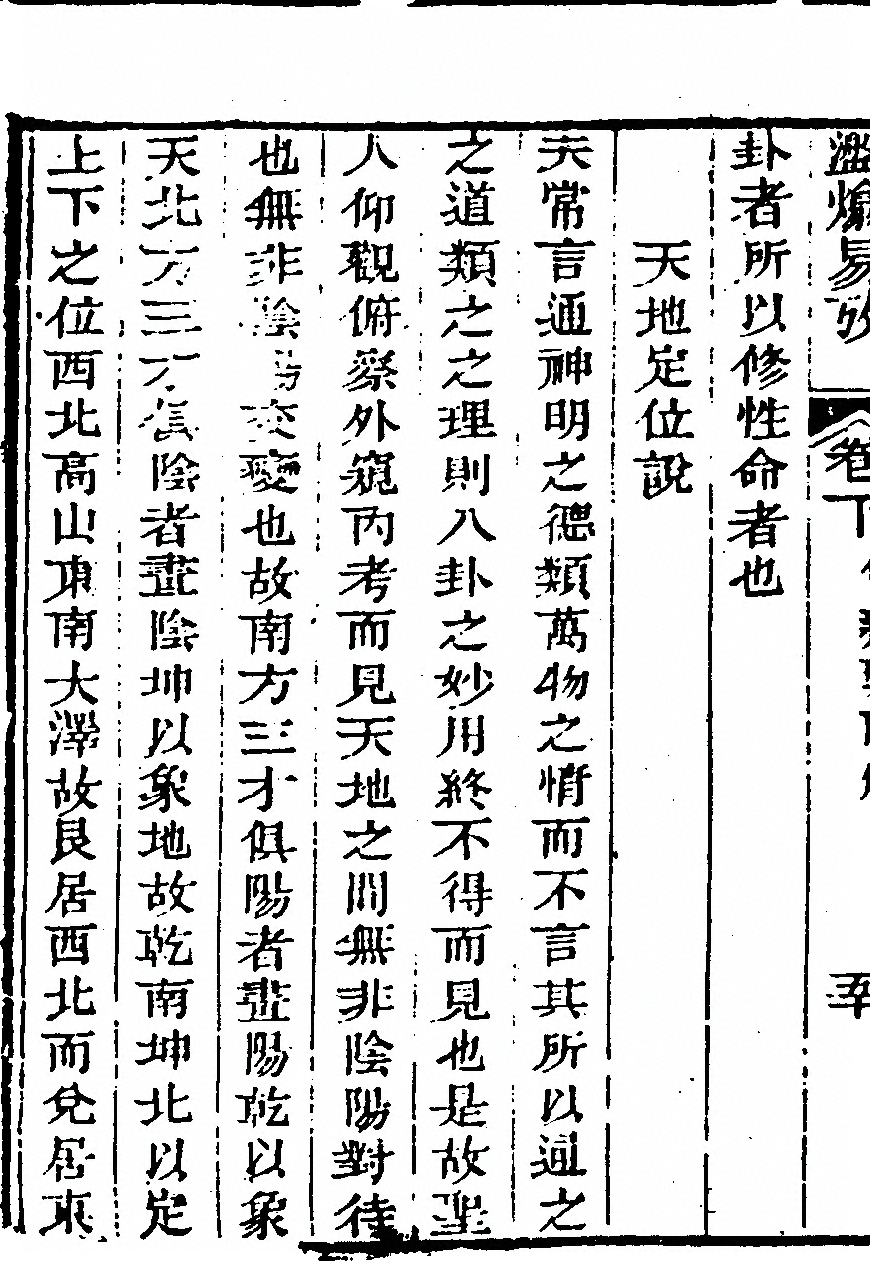 易攷
卷下
五
卦者所以修性命者也
天地定位說
夫常言通神明之德類萬物之情而不言其所以通之
之道類之之理則八卦之妙用終不得而見也是故聖
人仰觀俯察外窺內考而見天地之間無非陰陽對待
也無非陰陽交變也故南方三才俱陽者畫陽乾以象
天北方三才俱陰者畫陰坤以象地故乾南坤北以定
上下之位西北高山東南大澤故艮居西北而兌居東